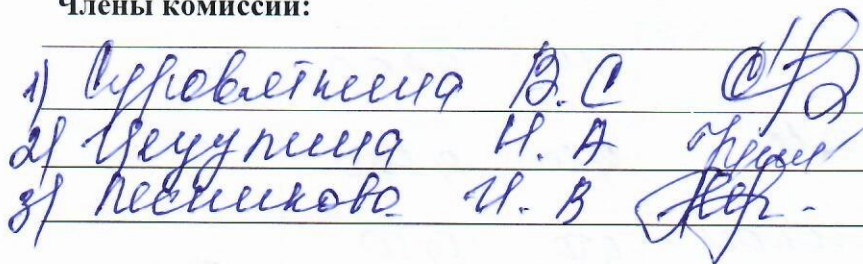 Члены комиссии:
1) Суровяткина В. С
2) Н. А
3) Песникова И. В